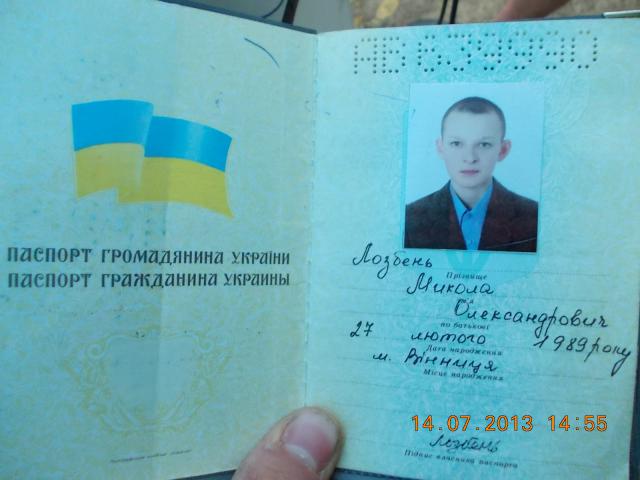 ПАСПОРТ ГРОМАДЯНИНА УКРАЇНИ
ПАСПОРТ ГРАЖДАНИНА УКРАИНЫ
Лозбень
Прізвище
Микола
Ім'я
Олександрович
по батькові
27 лютого 1989 року
Дата народження
м. Вінниця
Місце народження
14.07.2013 14:55
Лозбень
Підпис власника паспорта